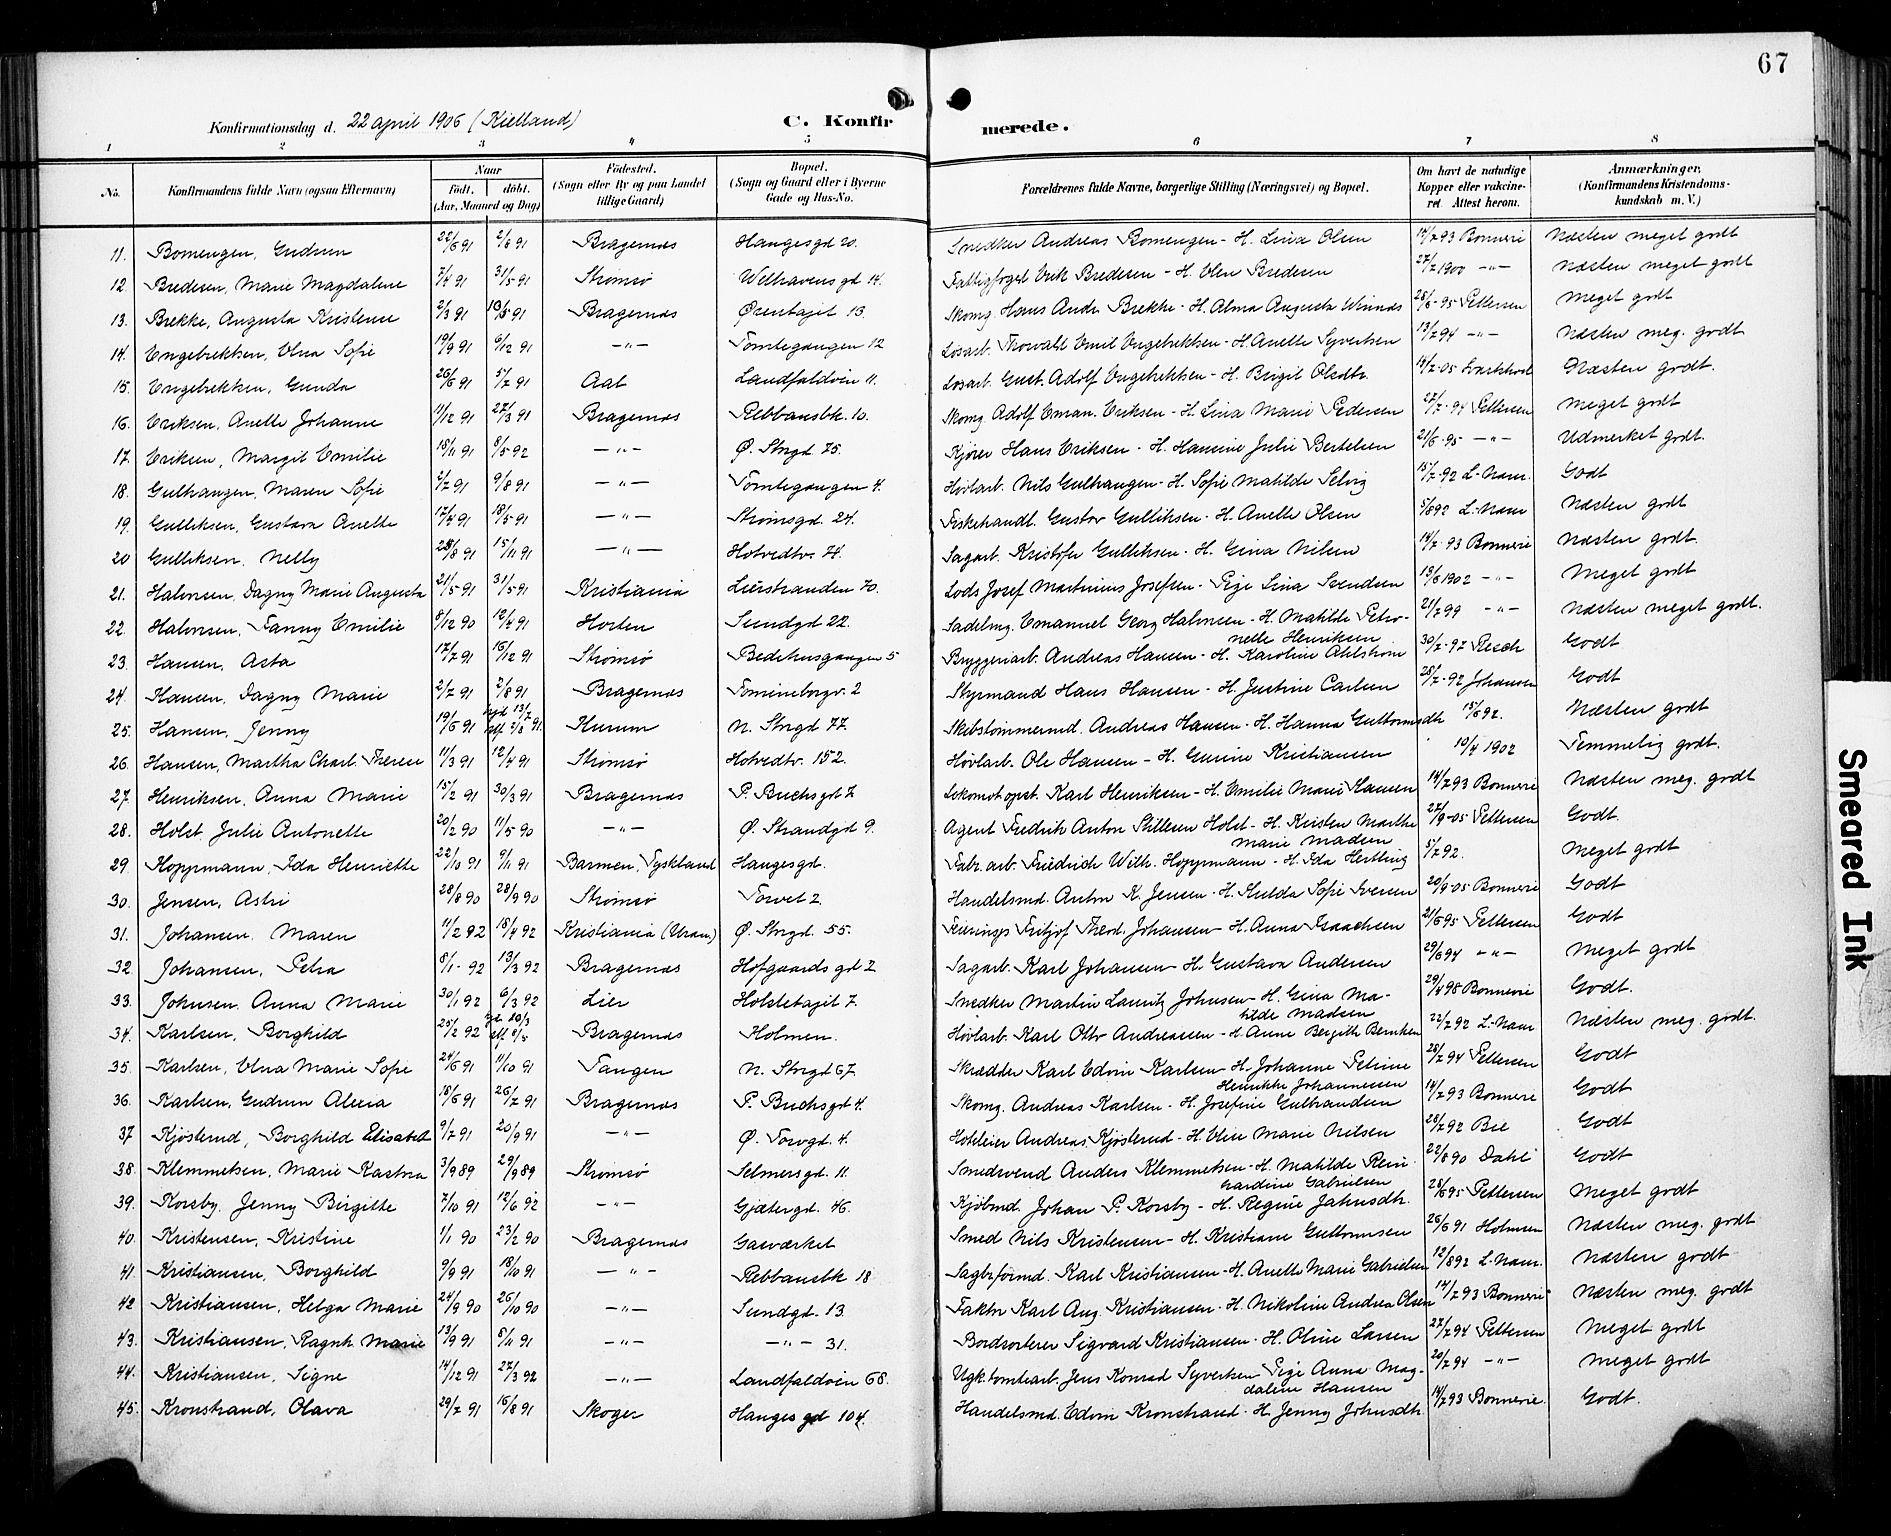 67
Konfirmationsdag d. 22 april 1906 (Kielland) C. Konfirmerede.
1 2 3 4 5 6 7 8
No. Konfirmandens fulde Navn (ogsaa Efternavn) Naar født. døbt. (Aar, Maaned og Dag) Fødested. (Sogn eller By og paa Landet tillige Gaard) Bopæl. (Sogn og Gaard eller i Byerne Gade og Hus-No. Forældrenes fulde Navne, borgerlige Stilling (Næringsvei) og Bopæl. Om havt de naturlige Kopper eller vaccineret Attest herom. Anmærkninger. (Konfirmandens Kristendomskundskab m. V.)
11. Bomengen, Gudrun 22/6 91 2/8 91 Bragernæs Haugesgd 20. Snedker Andreas Bomengen - H. Lina Olsen 14/7 93 Bonnevie Næsten meget godt
12. Bredesen, Marie Magdalene 7/4 91 31/5 91 Strømsø Welhavensgd 14. Fattigfoged Erik Bredesen - H. Elen Bredesen 27/7 1900 -"- Næsten meget godt
13. Brekke, Augusta Kristense 2/3 91 Bragernæs Ørentajet 13. Skomg. Hans Andr. Brekke - H. Alma Augusta 28/6 - 95 Pettersen Meget godt
14. Engebrektsen, Elna Sofie 19/9 91 6/12 91 -"- Tomtegangen 12 Løsarb. Thorvald Emil Engebrektsen - H. Anette Syvertsen 13/7 94 -"- Næsten meg. godt
15. Engebrektsen, Gunda 26/6 91 5/7 91 Aal Landfaldøen 11. Løsarb. Gust. Adolf Engebrektsen - H. Birgit Olsdtr. 14/7 - 05 Næsten godt.
16. Eriksen, Anette Johanne 11/12 91 27/3 91 Bragernæs Rebbansbk. 10. Skomg. Adolf Eman. Eriksen - H. Lina Marie Pedersen 27/7 - 94 Pettersen Meget godt
17. Eriksen, Margit Emilie 18/11 91 8/5 92 -"- Ø. Strgd 75. Kjører Hans Eriksen - H. Hansine Julie Bertelsen 21/6 - 95 -"- Udmerket godt.
18. Gulhaugen, Maren Sofie 2/7 91 9/8 91 -"- Tomtegangen 4. Høvlarb. Nils Gulhaugen - H. Sofie Matilde Selvig 15/7 - 92 L. Nam. Godt
19. Gulliksen, Gustava Anette 17/4 91 18/5 91 -"- Strømsgd. 24. Fiskehandl. Gustav Gulliksen - H. Anette Olsen 5/8 92 L. Nam Næsten godt
20 Gulliksen, Nelly 15/11 91 -"- Hotvedtv. 74. Sagarb. Kristofer Gulliksen - H. Gina Nilsen 14/7 - 93 Bonnevie Næsten godt.
21. Halvorsen, Dagny Marie Augusta 21/5 91 31/5 91 Kristiania Lierstranden 70. Lods Josef Martinius Josefsen - Pige Lina Svendsen 13/6 1902 -"- Meget godt
22. Halvorsen, Fanny Emilie 8/12 90 12/4 91 Horten Sundgd 22. Sadelmg. Emanuel Georg Halvorsen - H. Matilde Petronelle Henriksen 21/7 99 -"- Næsten meget godt.
23. Hansen, Asta 17/7 91 16/12 91 Strømsø Bedehusgangen 5 Bryggeriarb. Andreas Hansen - H. Karoline Ahlstrøm 30/7 - 92 Resch Godt
24. Hansen, Dagny Marie 2/7 91 2/8 91 Bragernæs Tomineborgv. 2 Styrmand Hans Hansen - H. Justine Carlsen 28/7 - 92 Johansen Godt
25. Hansen, Jenny 19/6 91 hjd 13/7 stf 2/8 91. Hurum N. Strgd 77. Skibstømmermd. Andreas Hansen - H. Hanna Guttormsdtr 15/6 92. Næsten godt
26. Hansen, Martha Charl. Therese 11/3 91 12/4 91 Strømsø Hotvedtv. 152. Høvlarb. Ole Hansen - H. Gurine Kristiansen 19/4 1902 Temmelig godt.
27. Henriksen, Anna Marie 15/2 91 30/3 91 Bragernæs P. Buchsgd 7 Lokomotopst. Karl Henriksen - H. Emilie Marie Hansen 14/7 93 Bonnevie Næsten meg. godt
28. Holst, Julie Antonette 20/2 90 11/5 90 -"- Ø. Strandgd 9. Agent Fredrik Anton Stillesen Holst - H. Kirsten Marthe Marie Madsen 27/9 - 05 Pettersen Godt.
29. Hoppmann, Ida Henriette 22/10 91 9/11 91 Barmen, Tyskland Haugesgd. Fabr. arb. Friedrich Wilh. Hoppmann - H. Ida Hertling 5/7 92. Meget godt
30. Jensen, Astri 28/8 90 28/9 90 Strømsø Torvet 2 Handelsmd. Anton K. Jensen - H. Hulda Sofie Iversen 20/9 - 05 Bonnevie Godt
31. Johansen, Maren 11/2 92 18/4 92 Kristiania (Uran.) Ø. Strgd. 55. Fritjof Theod. Johansen - H. Anna Isaachsen 21/6 95 Pettersen Godt
32. Johansen, Petra 8/1 - 92 13/3 92 Bragernæs Hofgaardsgd 2 Sagarb. Karl Johansen - H. Gustava Andersen 29/6 94 -"- Meget godt
33. Johnsen, Anna Marie 30/1 92 6/3 92 Lier Holstetajet 7. Snedker Martin Lauritz Johnsen - H. Gina Matilde Madsen 29/4 98 Bonnevie Godt.
34. Karlsen, Borghild 25/2 92 10/3 Bragernæs Holmen. Høvlarb. Karl Otto Andreassen - H. Anne Bergitte Berntsen 22/7 92 L. Nam Næsten meg. godt.
35. Karlsen, Elna Marie Sofie 24/6 91 11/10 91 Tangen N. Strgd 67. Skrædder Karl Edvin Karlsen - H. Johanne Petrine Henrikke Johannessen 28/7 94 Pettersen Godt
36. Karlsen, Gudrun Alexia 18/6 91 26/7 91 Bragernæs P. Buchsgd 4. Skomg. Andreas Karlsen - H. Josefine Gulbrandsen 14/7 93 Bonnevie Godt
37 Kjøsterud, Borghild Elisabet 9/7 91 20/9 91 -"- Ø. Torvgd. 4. Hoteleier Andreas Kjøsterud - H. Elise Marie Nilsen 28/7 92 Bie Godt
38. Klemmetsen, Marie Kastna 3/9 89 29/9 89 Strømsø Selmersgd. 11. Smedsvend Anders Klemmetsen - H. Matilde Reinhardine Gabrielsen 22/8 90 Dahl Godt
39. Korsby, Jenny Birgitte 7/10 91 12/6 92 -"- Gjætergd. 46. Kjøbmd. Johan P. Korsby - H. Regine Jahnsdtr. 28/6 95 Pettersen Meget godt
40. Kristensen, Kristine 1/1 90 23/2 90 Bragernæs Gasværket Smed Nils Kristensen - H. Kristiane Guttormsen 26/6 91 Holmsen Næsten meg. godt
41 Kristiansen, Borghild 9/9 91 18/10 91 -"- Rebbansbk 18 Sagbrformd. Karl Kristiansen - H. Anette Marie Gabrielsen 12/8 92 L. Nam. Næsten godt
42 Kristiansen, Helga Marie 24/9 90 26/10 90 -"- Sundgd. 13 Faktor Karl Aug. Kristiansen - H. Nikoline Andrea Olsen 14/7 93 Bonnevie Næsten meg. godt
43. Kristiansen, Ragnh. Marie 13/9 91 8/11 91 -"- -"- 31. Bordsorterer Sigvard Kristiansen - H. Oline Larsen 27/7 94 Pettersen Meget godt
44. Kristiansen, Signe 14/12 91 27/3 92 -"- Landfaldøen 68. Ugk. tomtearb. Jens Konrad Syvertsen - Pige Anna Magdalene Hansen 20/7 94 -"- Meget godt
45. Kronstrand, Olava 29/7 91 16/8 91 Skoger Haugesgd 104. Handelsmd. Edvin Kronstrand - H. Jenny Johnsdtr. 14/7 93 Bonnevie. Godt.
Smeared Ink